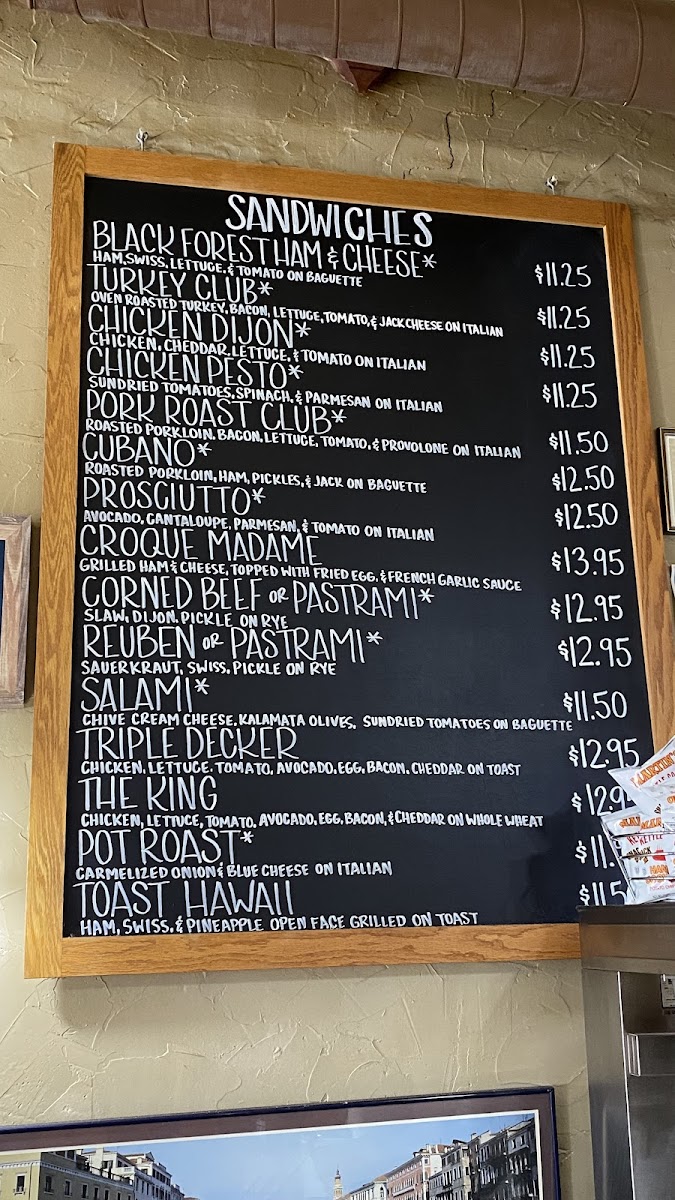 SANDWICHES
BLACK FOREST HAM & CHEESE* $11.25
HAM, SWISS, LETTUCE, & TOMATO ON BAGUETTE
TURKEY CLUB* $11.25
OVEN ROASTED TURKEY, BACON, LETTUCE, TOMATO, & JACK CHEESE ON ITALIAN
CHICKEN DIJON* $11.25
CHICKEN, CHEDDAR, LETTUCE, & TOMATO ON ITALIAN
CHICKEN PESTO* $11.25
SUNDRIED TOMATOES, SPINACH, & PARMESAN ON ITALIAN
PORK ROAST CLUB* $11.50
ROASTED PORKLOIN, BACON, LETTUCE, TOMATO, & PROVOLONE ON ITALIAN
CUBANO* $12.50
ROASTED PORKLOIN, HAM, PICKLES, & JACK ON BAGUETTE
PROSCIUTTO* $12.50
AVOCADO, CANTALOUPE, PARMESAN, & TOMATO ON ITALIAN
CROQUE MADAME $13.95
GRILLED HAM & CHEESE, TOPPED WITH FRIED EGG, & FRENCH GARLIC SAUCE
CORNED BEEF OR PASTRAMI* $12.95
SLAW, DIJON, PICKLE ON RYE
REUBEN OR PASTRAMI* $12.95
SAUERKRAUT, SWISS, PICKLE ON RYE
SALAMI* $11.50
CHIVE CREAM CHEESE, KALAMATA OLIVES, SUNDRIED TOMATOES ON BAGUETTE
TRIPLE DECKER $12.95
CHICKEN, LETTUCE, TOMATO, AVOCADO, EGG, BACON, CHEDDAR ON TOAST
THE KING $12.9
CHICKEN, LETTUCE, TOMATO, AVOCADO, EGG, BACON, & CHEDDAR ON WHOLE WHEAT
POT ROAST* $11.
CARMELIZED ONION & BLUE CHEESE ON ITALIAN
TOAST HAWAII $11.5
HAM, SWISS, & PINEAPPLE OPEN FACE GRILLED ON TOAST